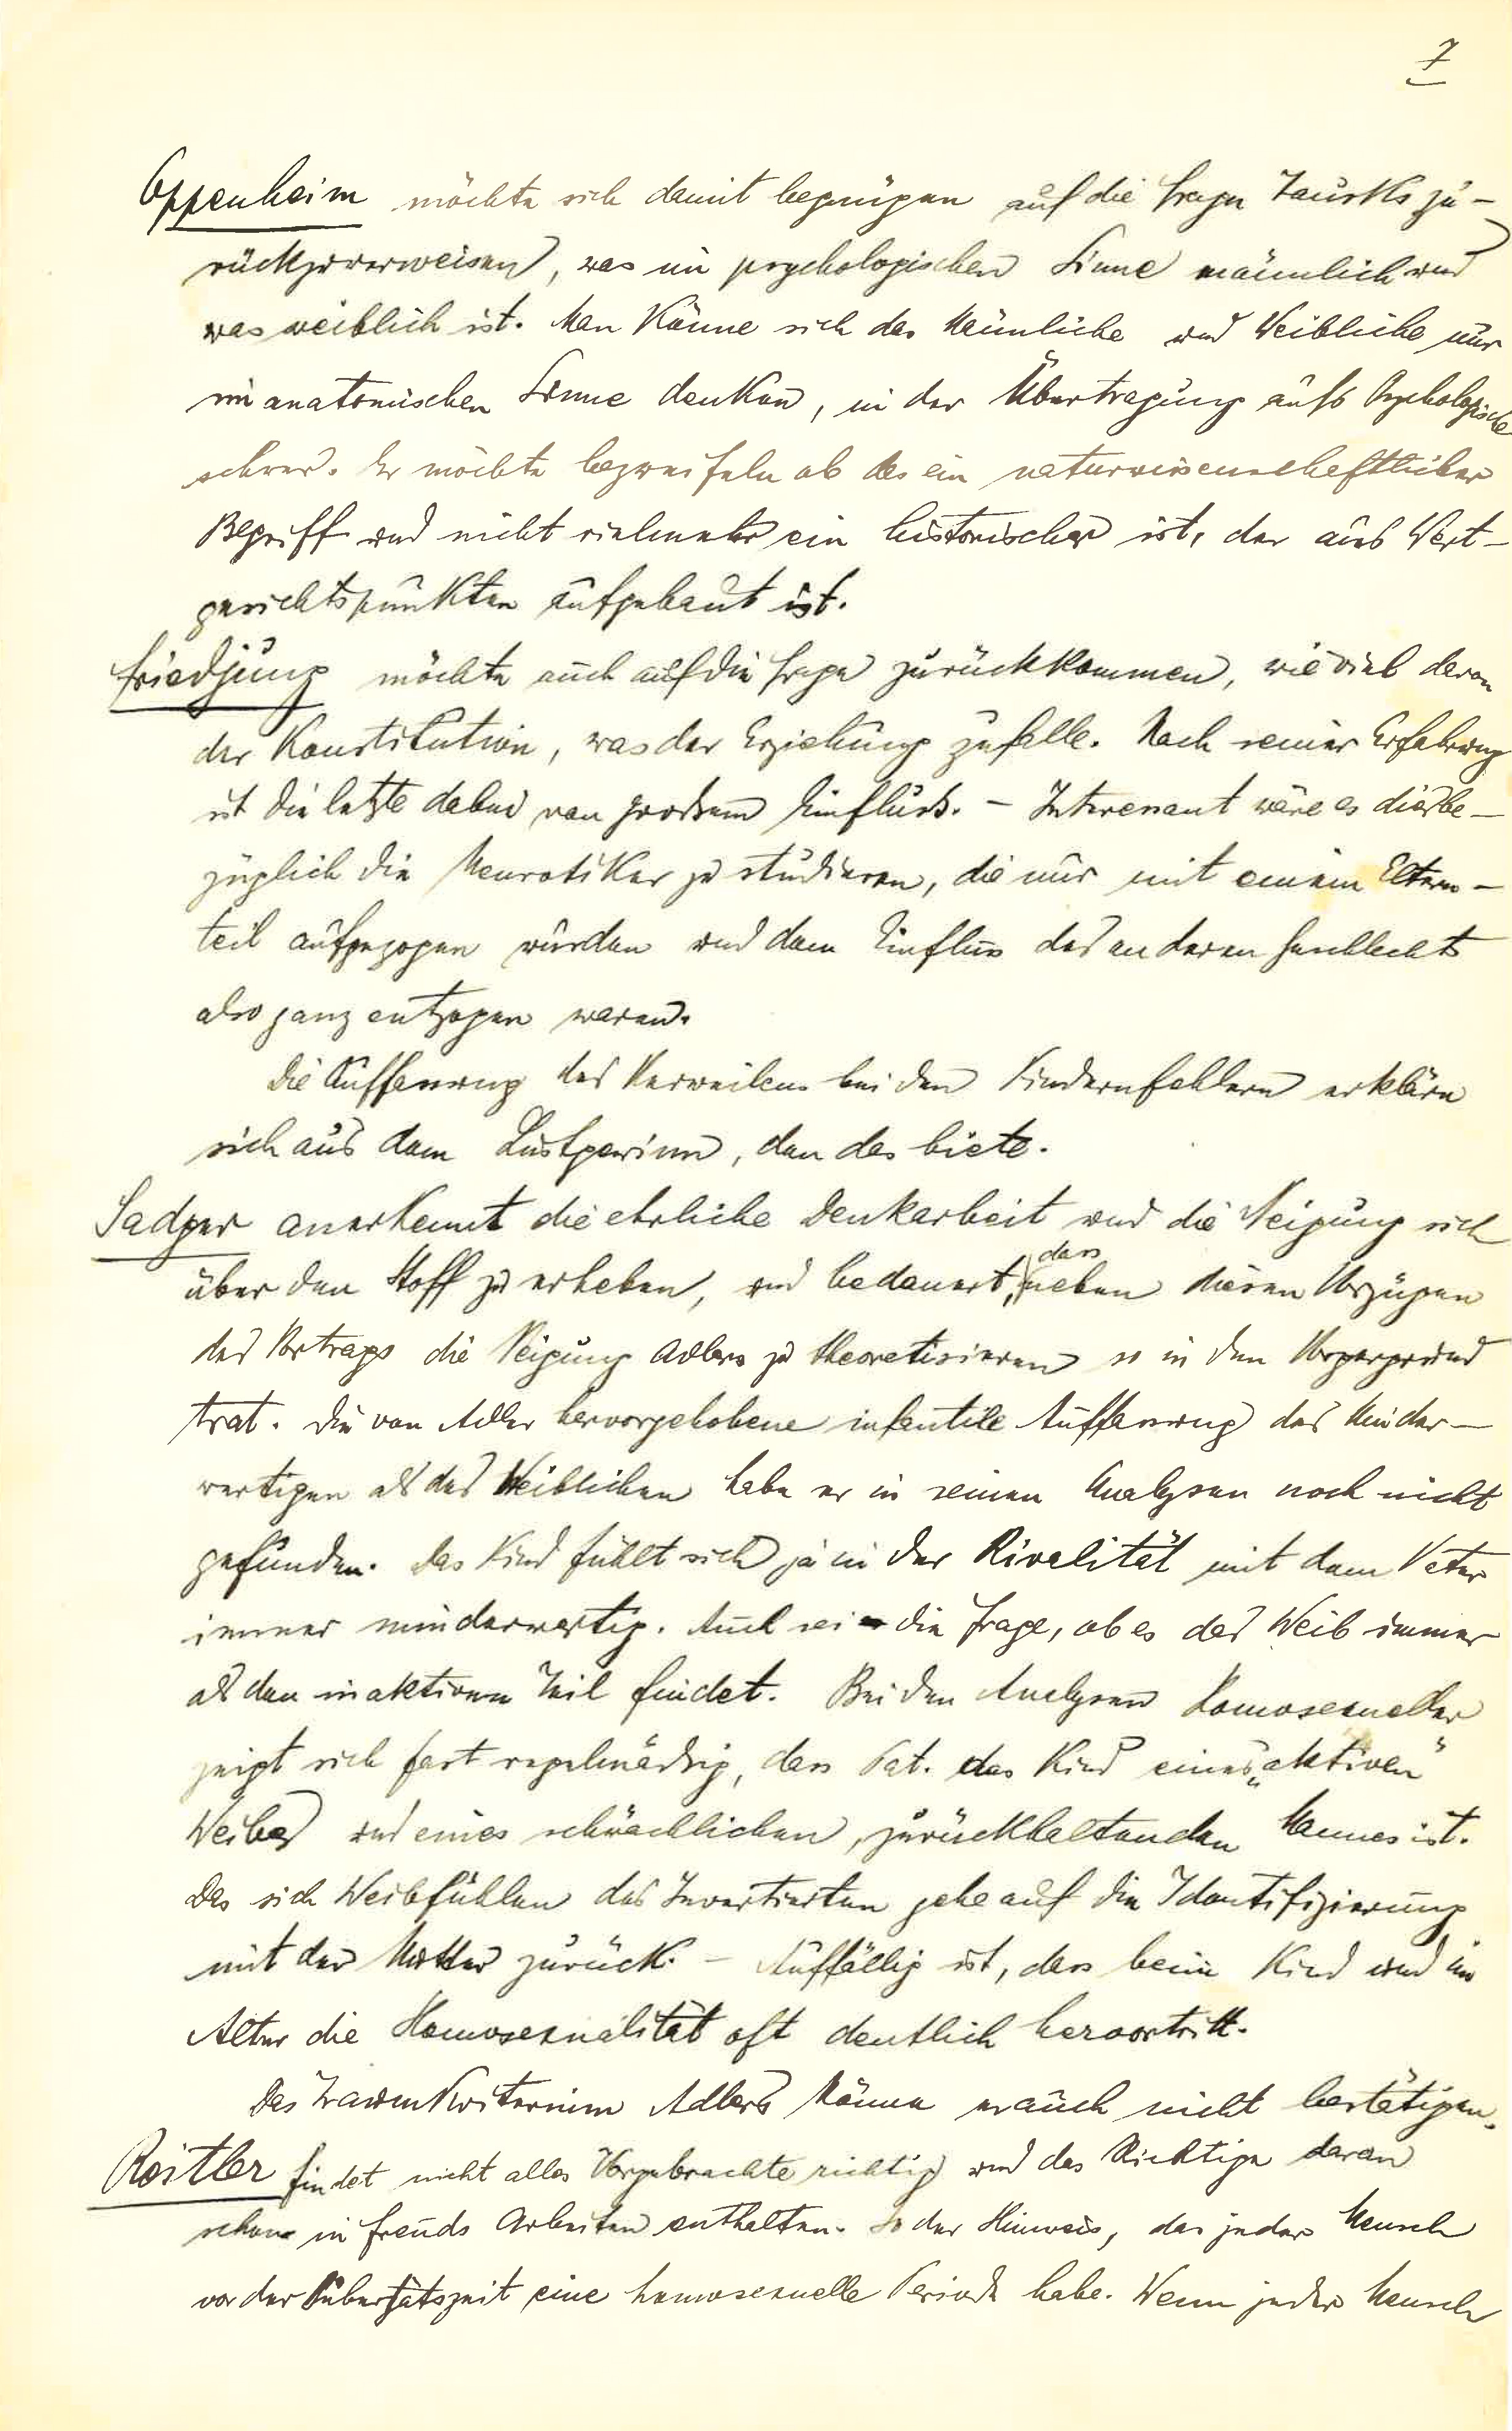 7
Oppenheim möchte sich damit begnügen auf die Frage Tausks zu-
rückzuverweisen, was im psychologischen Sinne männlich und
was weiblich ist. Man könne sich das Männliche und Weibliche nur
im anatomischen Sinne denken, in der Übertragung aufs Psychologische
schwer. Er möchte bezweifeln ob das ein naturwissenschaftlicher
Begriff und nicht vielmehr ein historischer ist, der aus Wert-
gesichtspunkten aufgebaut ist.
Friedjung möchte auch auf die Frage zurückkommen, wieviel davon
der Konstitution, was der Erziehung zufalle. Nach seiner Erfahrung
ist die letzte dabei von grossem Einfluss. – Interessant wäre es diesbe-
züglich die Neurotiker zu studieren, die nur mit einem Eltern-
teil aufgezogen wurden und dem Einfluss des anderen Geschlechts
also ganz entzogen waren.
Die Auffassung des Verweilens bei den Kinderfehlern erkläre
sich aus dem Lustgewinn, den das biete.
Sadger anerkennt die ehrliche Denkarbeit und die Neigung sich
über den Stoff zu erheben, und bedauert, dass neben diesen Vorzügen
des Vortrags die Neigung Adlers zu theoretisieren so in den Vordergrund
trat. Die von Adler hervorgehobene infantile Auffassung des Minder-
wertigen als des Weiblichen habe er in seinen Analysen noch nicht
gefunden. Das Kind fühlt sich ja in der Rivalität mit dem Vater
immer minderwertig. Auch sei die Frage, ob es das Weib immer
als den inaktiven Teil findet. Bei den Analysen Homosexueller
zeigt sich fast regelmässig, dass Pat. das Kind eines „aktiven"
Weibes und eines schwächlichen, zurückhaltenden Mannes ist.
Das sich Weibfühlen des Invertierten gehe auf die Identifizierung
mit der Mutter zurück. – Auffällig ist, dass beim Kind und im
Alter die Homosexualität oft deutlich hervortritt.
Das Traumkriterium Adlers könne er auch nicht bestätigen.
Reitler findet nicht alles Vorgebrachte richtig und das Richtige daran
schon in Freuds Arbeiten enthalten. So der Hinweis, das jeder Mensch
vor der Pubertätszeit eine homosexuelle Periode habe. Wenn jeder Mensch